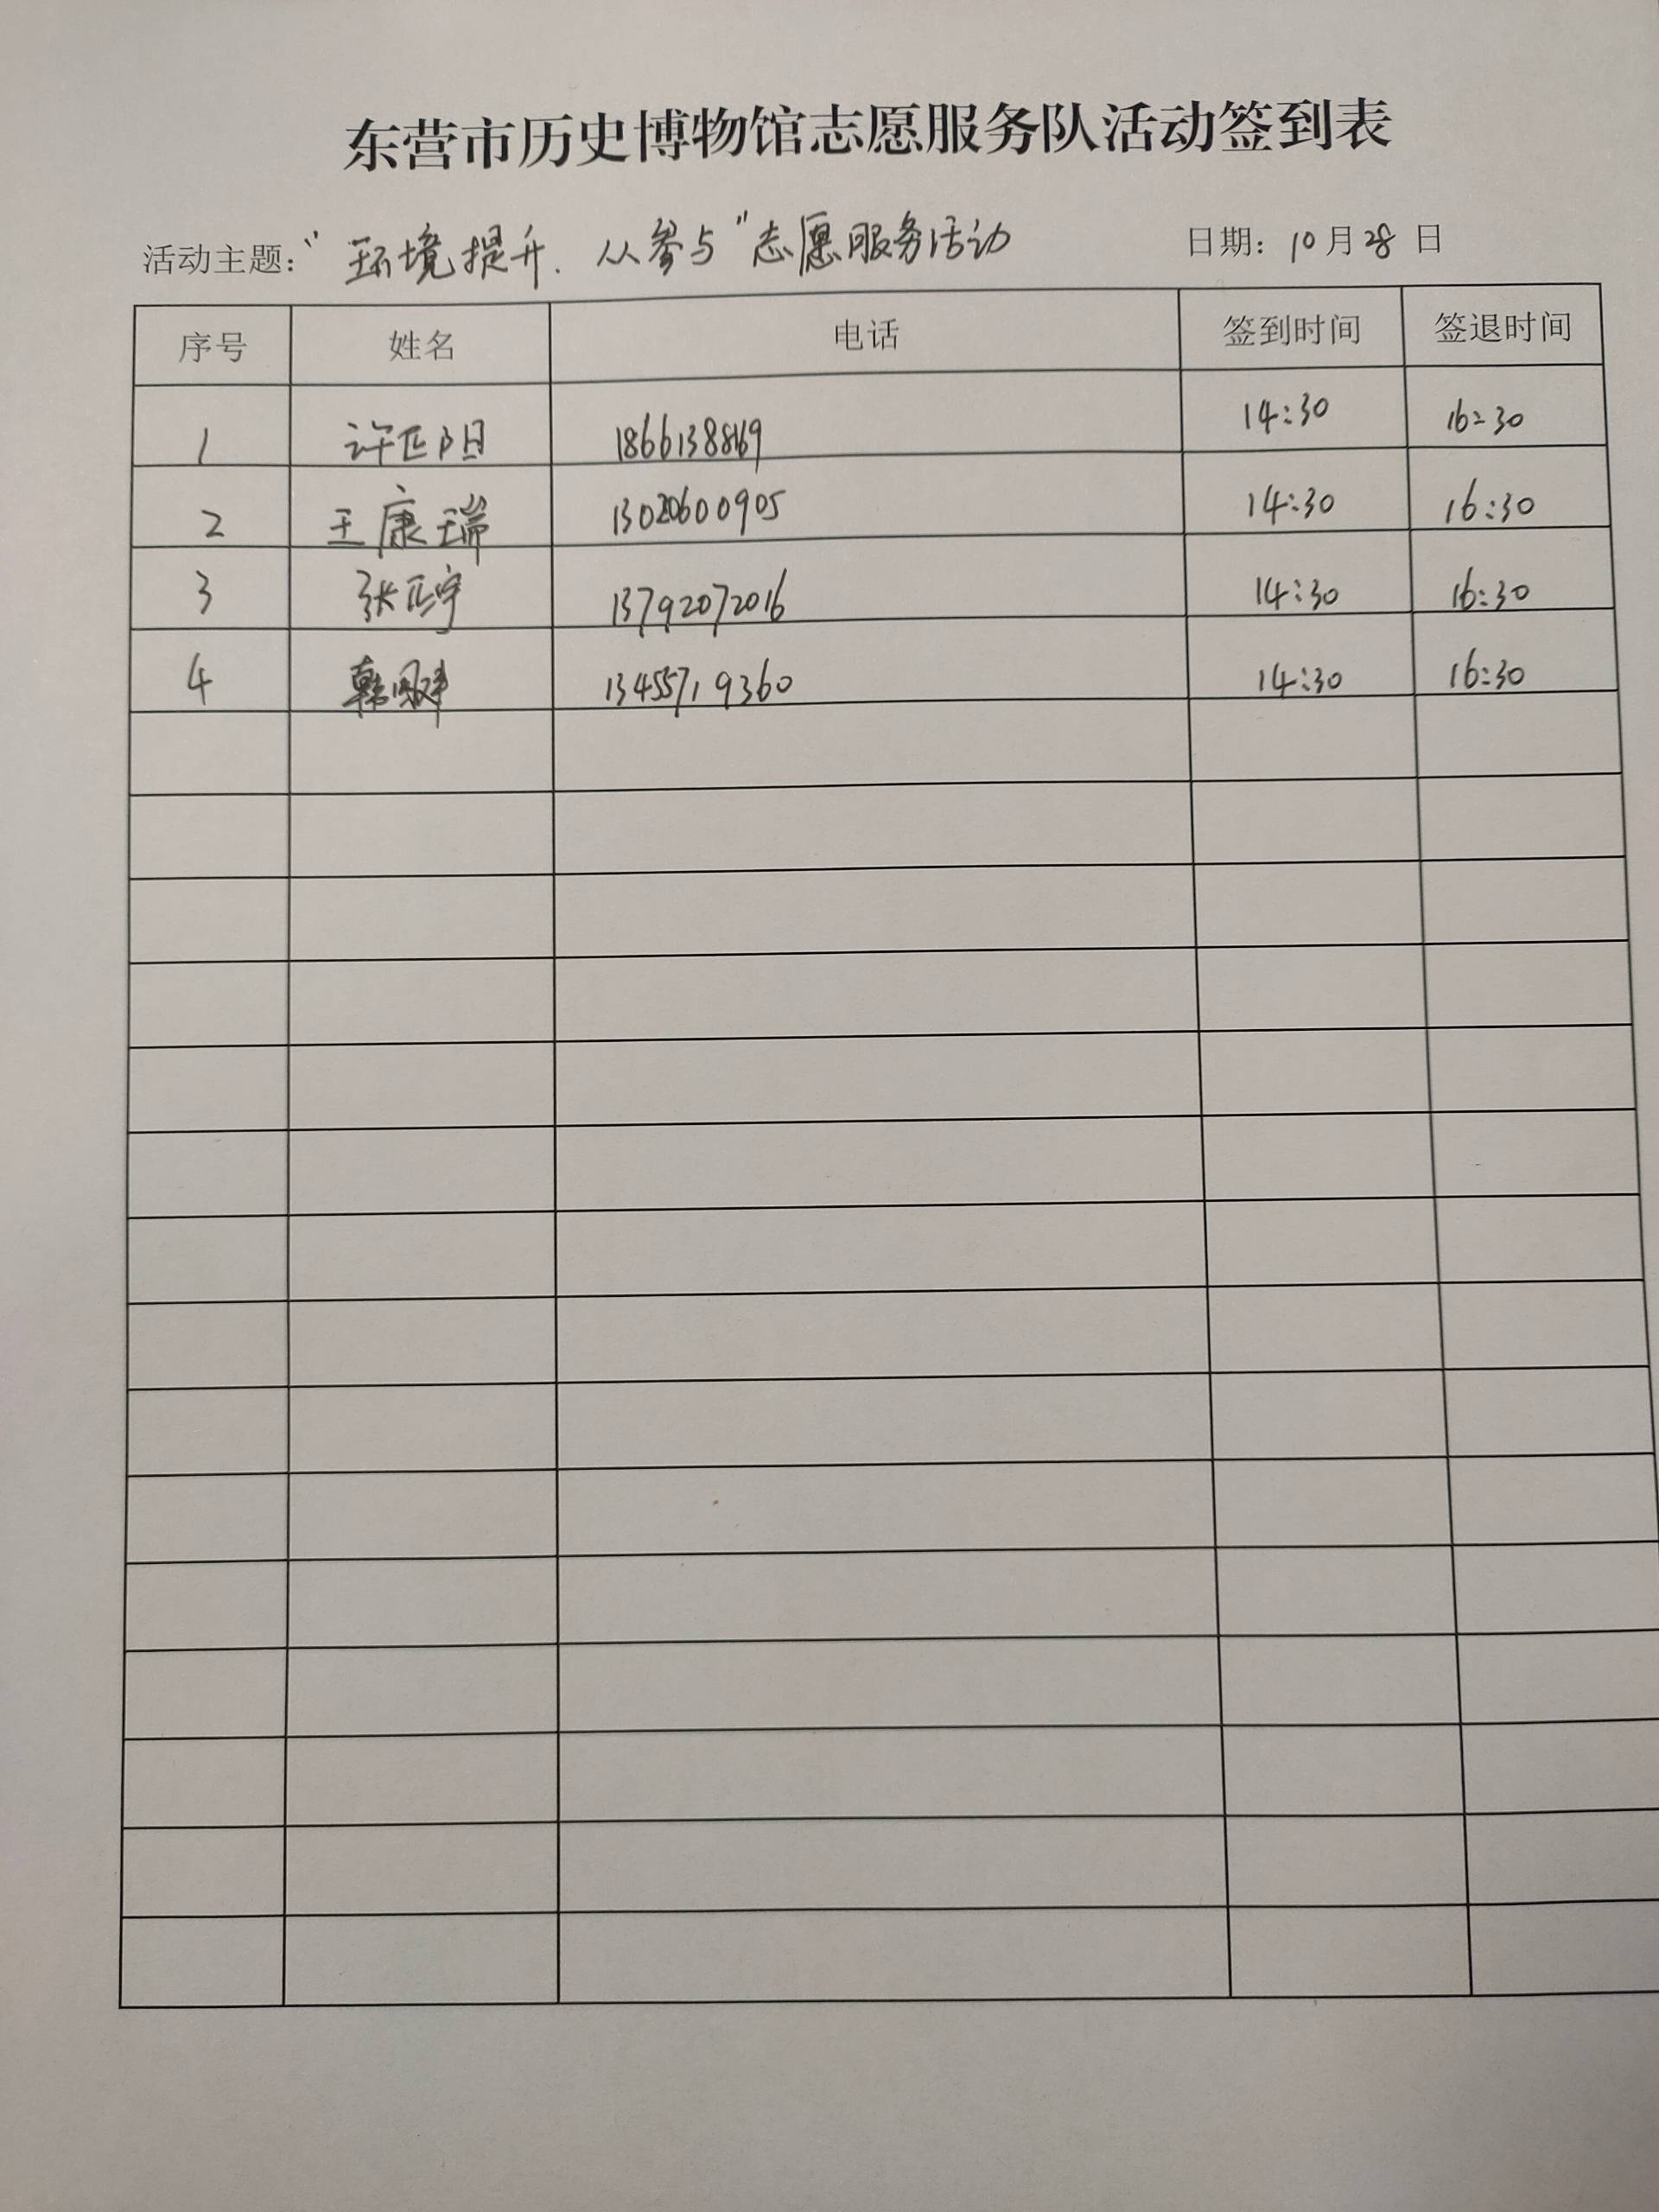 东营市历史博物馆志愿服务队活动签到表
活动主题：“环境提升、从参与”志愿服务活动 日期：10月28日
序号 姓名 电话 签到时间 签退时间
1 许 阳 14:30 16:30
2 王康瑞 13020600905 14:30 16:30
3 张 宇 13792072016 14:30 16:30
4 韩 13455719360 14:30 16:30